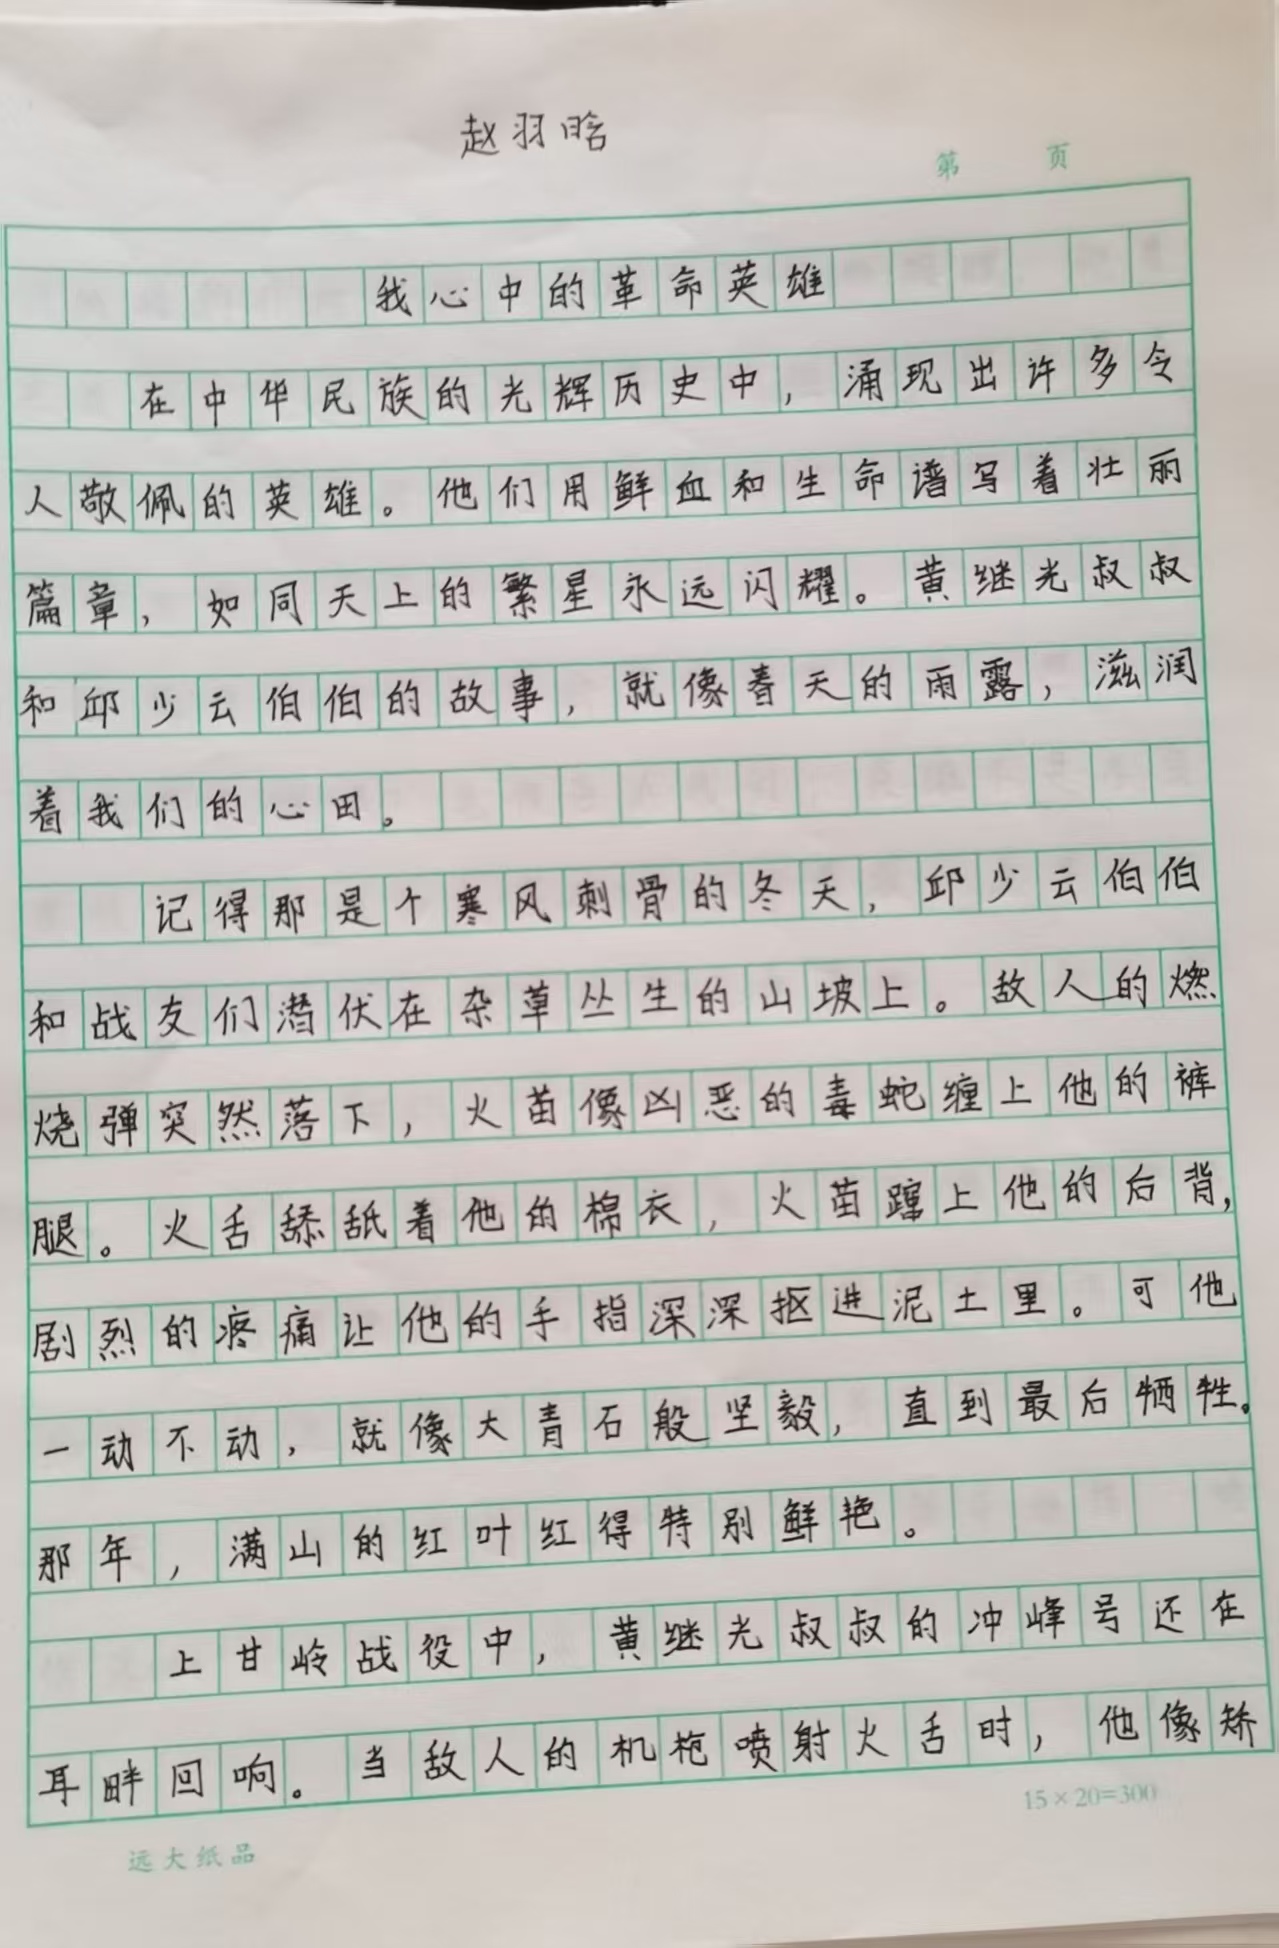 赵羽晗
第 页
我心中的革命英雄
在中华民族的光辉历史中，涌现出许多令
人敬佩的英雄。他们用鲜血和生命谱写着壮丽
篇章，如同天上的繁星永远闪耀。黄继光叔叔
和邱少云伯伯的故事，就像春天的雨露，滋润
着我们的心田。
记得那是个寒风刺骨的冬天，邱少云伯伯
和战友们潜伏在杂草丛生的山坡上。敌人的燃
烧弹突然落下，火苗像凶恶的毒蛇缠上他的裤
腿。火舌舔舐着他的棉衣，火苗蹿上他的后背，
剧烈的疼痛让他的手指深深抠进泥土里。可他
一动不动，就像大青石般坚毅，直到最后牺牲。
那年，满山的红叶红得特别鲜艳。
上甘岭战役中，黄继光叔叔的冲峰号还在
耳畔回响。当敌人的机枪喷射火舌时，他像矫
15×20=300
远大纸品